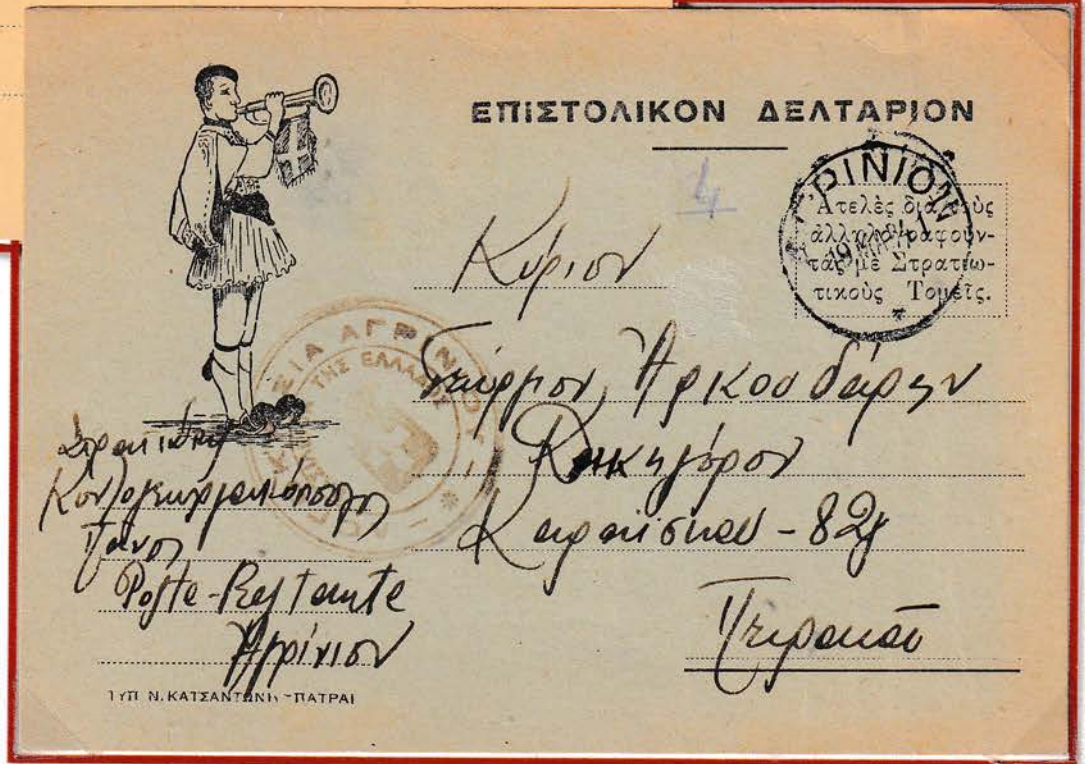 ΕΠΙΣΤΟΛΙΚΟΝ ΔΕΛΤΑΡΙΟΝ
ΑΓΡΙΝΙΟΝ
Ἀτελὲς διὰ τοὺς
ἀλληλογραφοῦν-
τας μὲ Στρατιω-
τικοὺς Τομεῖς.
Κύριον
Γεώργιον Ἀρκουδάρην
Δικηγόρον
Καραΐσκου - 82
Πειραιᾶ
ΑΓΡΙΝΙΟΥ
ΤΗΣ ΕΛΛΑΔΟΣ
Στρατιώτης
Πάνος
Poste-Restante
Ἀγρίνιον
ΤΥΠ Ν. ΚΑΤΣΑΝΤΩΝΗ - ΠΑΤΡΑΙ